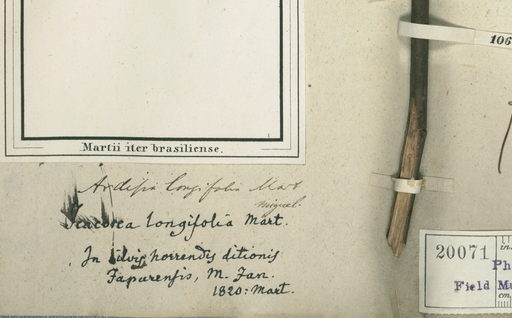 Martii iter brasiliense.
Ardisia longifolia Mart
Miquel.
Icacorea longifolia Mart.
In silvis horrendis ditionis
Japurensis, M. Jan.
1820: Mart.
106
20071
Ph
Field Mu
cm